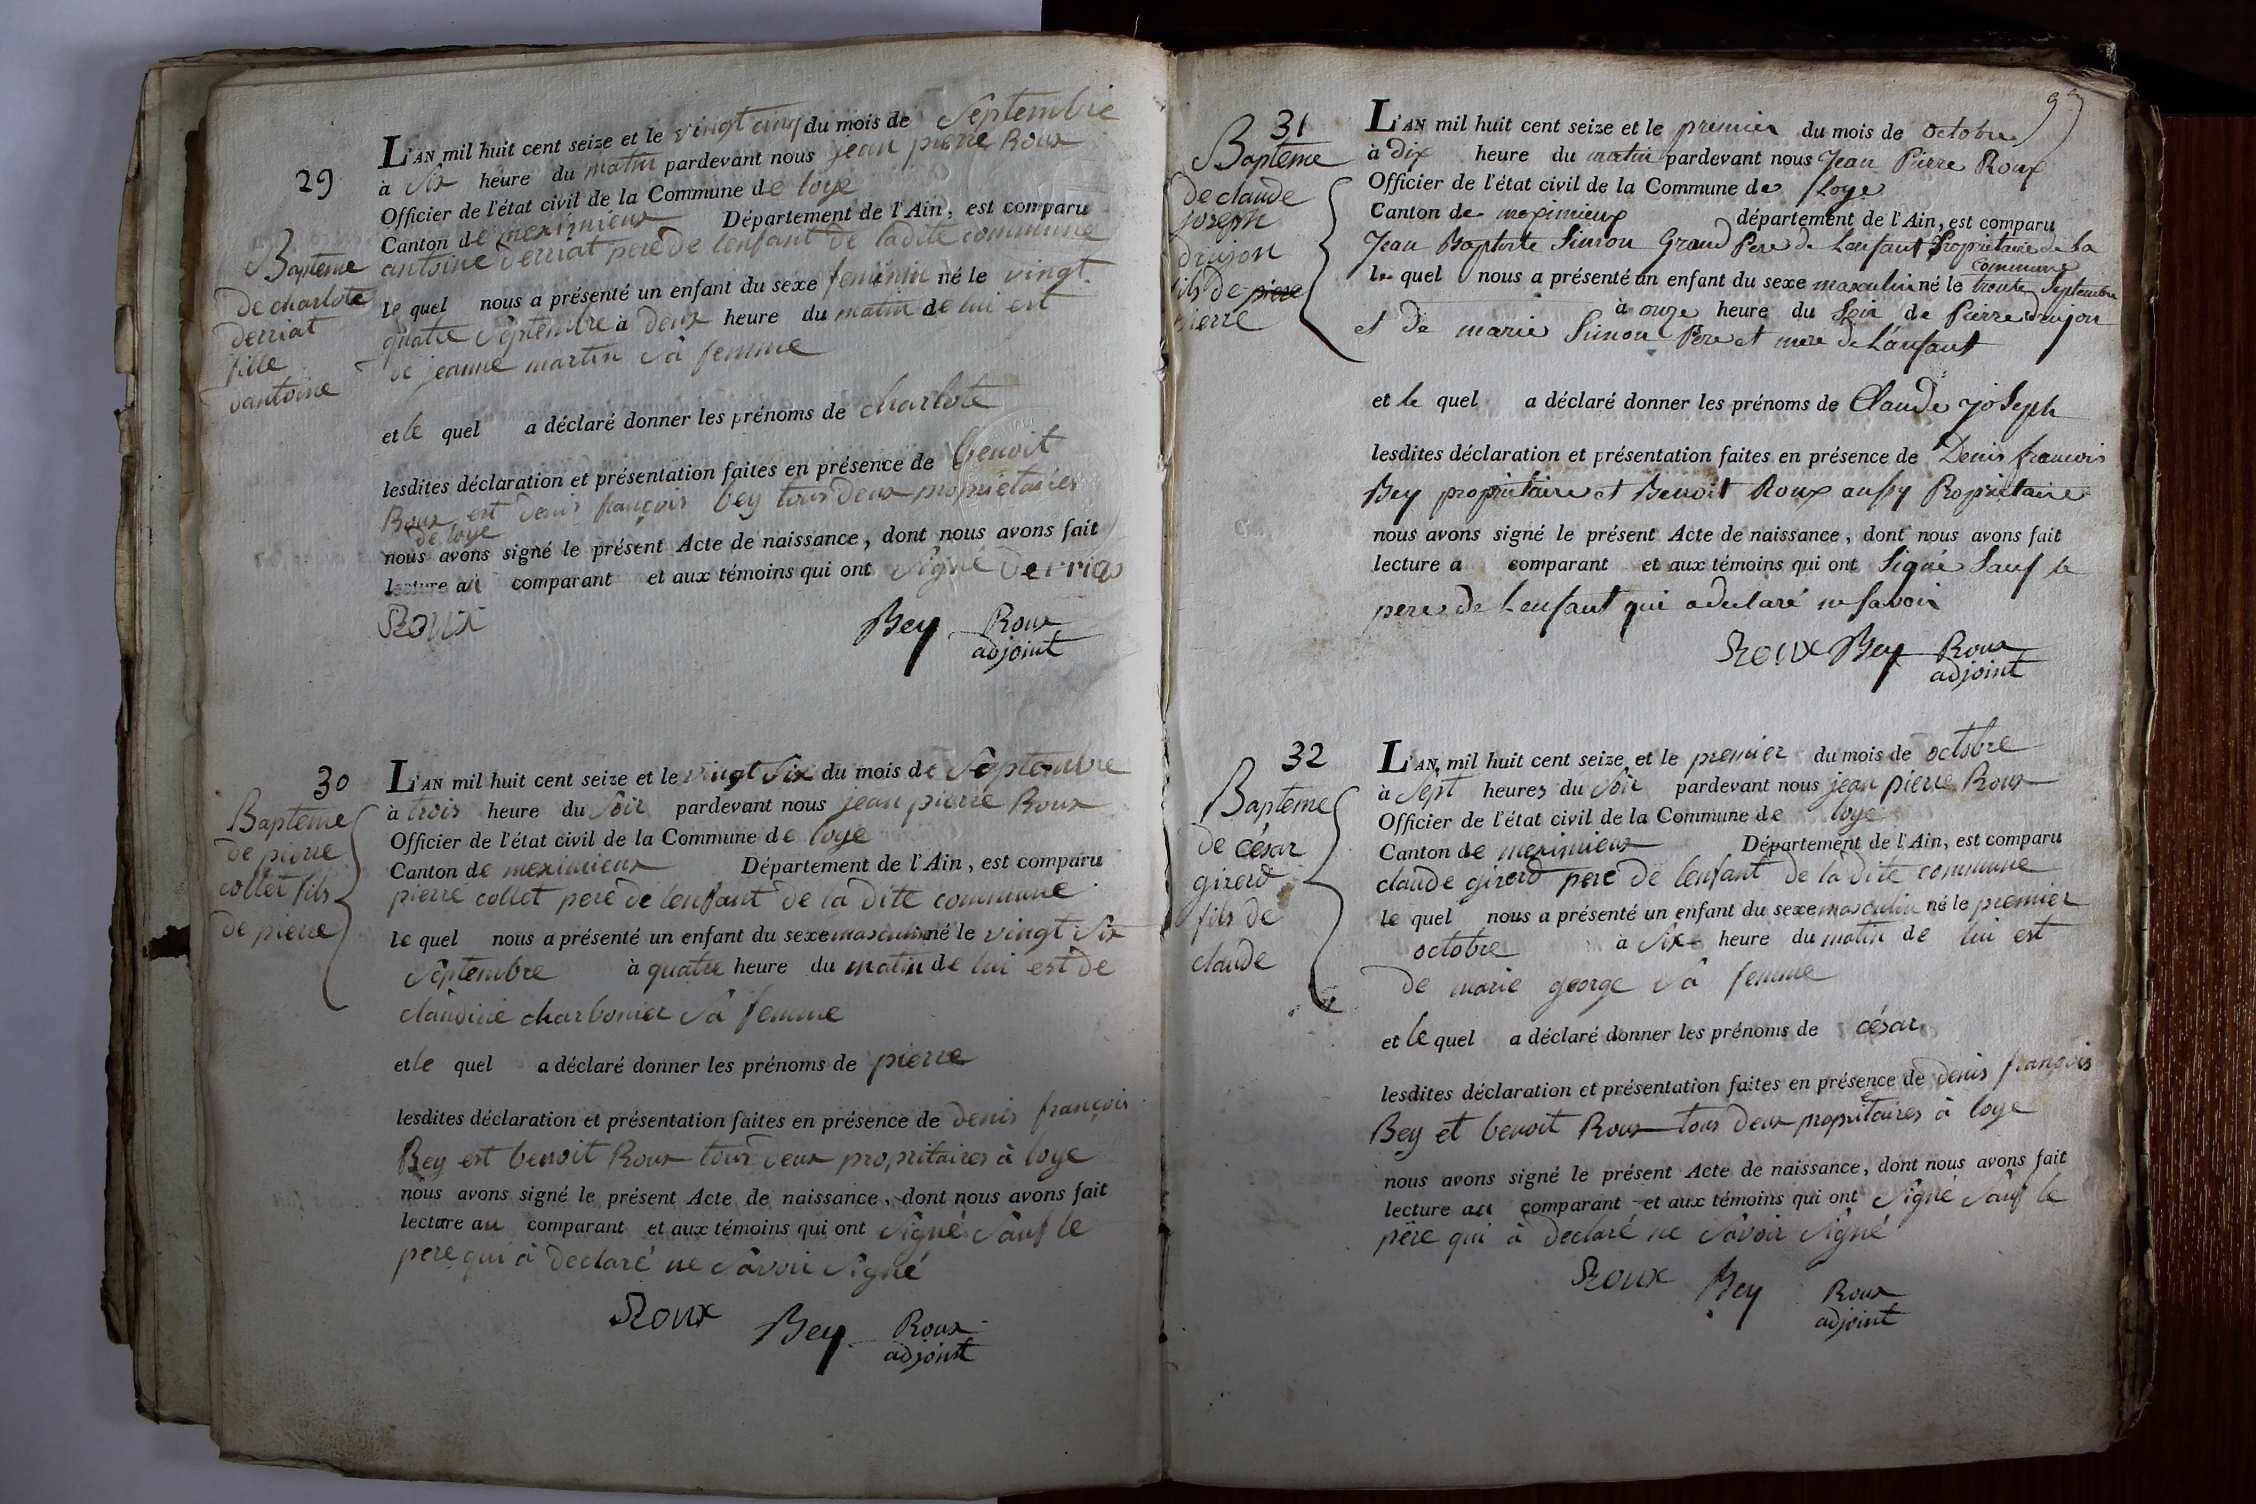 29
Baptême
de charlote
derriat
fille
dantoine
L'AN mil huit cent seize et le vingt cinq du mois de Septembre
à Six heure du matin pardevant nous jean pierre Roux
Officier de l'état civil de la Commune de loye
Canton de meximieux Département de l'Ain, est comparu
antoine derriat pere de lenfant de ladite commune
le quel nous a présenté un enfant du sexe feminin né le vingt
quatre Septembre à deux heure du matin de lui est
de jeanne martin Sâ femme
et le quel a déclaré donner les prénoms de charlote
lesdites déclaration et présentation faites en présence de benoit
Roux est denis françois bey tous deux propriétaires
de loye
nous avons signé le présent Acte de naissance, dont nous avons fait
lecture au comparant et aux témoins qui ont Signé
Roux Bey Roux
adjoint
30
Baptême
de pierre
collet fils
de pierre
L'AN mil huit cent seize et le vingt Six du mois de Septembre
à trois heure du Soir pardevant nous jean pierre Roux
Officier de l'état civil de la Commune de loye
Canton de meximieux Département de l'Ain, est comparu
pierre collet pere de lenfant de la dite commune
le quel nous a présenté un enfant du sexe masculin né le vingt Six
Septembre à quatre heure du matin de lui est de
claudine charbonier Sâ femme
et le quel a déclaré donner les prénoms de pierre
lesdites déclaration et présentation faites en présence de denis françois
Bey est benoit Roux tous deux propritaires à loye
nous avons signé le présent Acte de naissance, dont nous avons fait
lecture au comparant et aux témoins qui ont Signé Sauf le
pere qui à declaré ne Savoir Signé
Roux Bey Roux
adjoint
31
Baptême
de claude
joseph
drujon
fils de pierre
pierre
L'AN mil huit cent seize et le premier du mois de octobre
à dix heure du matin pardevant nous Jean Pierre Roux
Officier de l'état civil de la Commune de Loye
Canton de meximieux département de l'Ain, est comparu
Jean Baptiste Simon Grand Pere de Lenfant Propriétaire de La
commune
le quel nous a présenté un enfant du sexe masculin né le trente Septembre
à onze heure du Soir de Pierre drujon
et De marie Simon Pere et mere de L'enfant
et le quel a déclaré donner les prénoms de Claude joSeph
lesdites déclaration et présentation faites en présence de Denis francois
Bey propriétaire et Benoit Roux aussy Propriétaire
nous avons signé le présent Acte de naissance, dont nous avons fait
lecture a comparant et aux témoins qui ont Signé Sauf le
pere de Lenfant qui a declaré ne Savoir
Roux Bey Roux
adjoint
32
Baptême
de césar
girerd
fils de
claude
L'AN mil huit cent seize et le premier du mois de octobre
à Sept heures du Soir pardevant nous jean pierre Roux
Officier de l'état civil de la Commune de loye
Canton de meximieux Département de l'Ain, est comparu
claude girerd pere de lenfant de la dite commune
le quel nous a présenté un enfant du sexe masculin né le premier
octobre à Six heure du matin de lui est
de marie george Sâ femme
et le quel a déclaré donner les prénoms de césar
lesdites déclaration et présentation faites en présence de denis françois
Bey et benoit Roux tous deux propritaires à loye
nous avons signé le présent Acte de naissance, dont nous avons fait
lecture au comparant et aux témoins qui ont Signé Sauf le
père qui à declaré ne Savoir Signé
Roux Bey Roux
adjoint